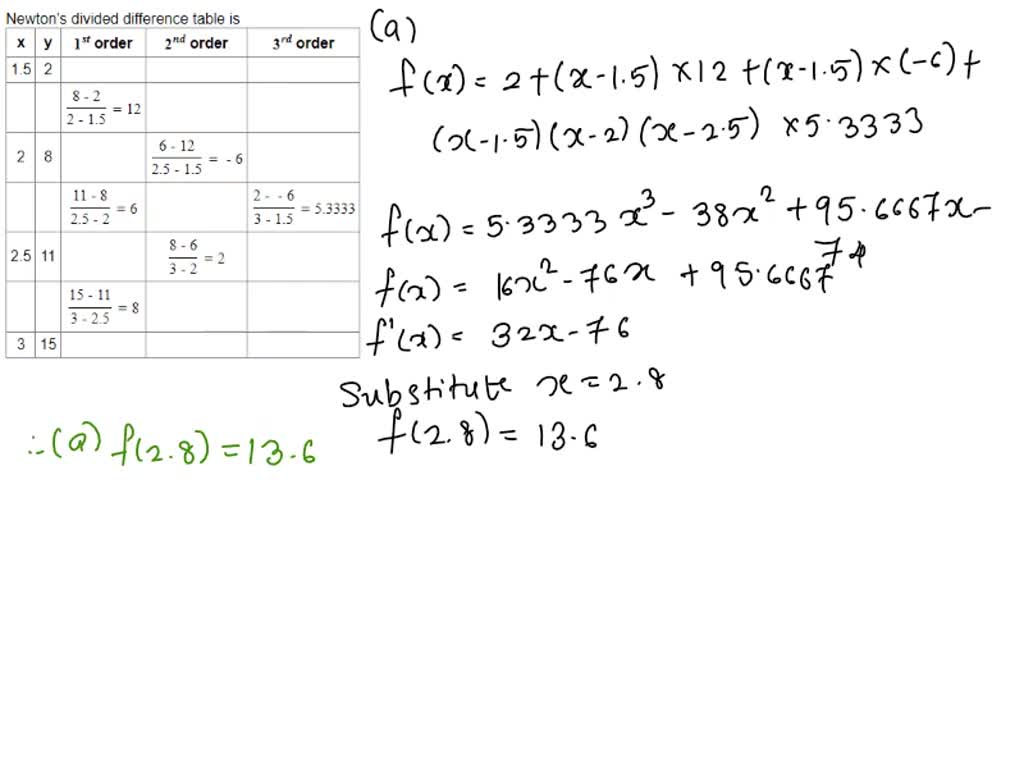 Newton's divided difference table is
x y 1st order 2nd order 3rd order
1.5 2
8 - 2 / 2 - 1.5 = 12
2 8 6 - 12 / 2.5 - 1.5 = - 6
11 - 8 / 2.5 - 2 = 6 2 - - 6 / 3 - 1.5 = 5.3333
2.5 11 8 - 6 / 3 - 2 = 2
15 - 11 / 3 - 2.5 = 8
3 15
(a)
f(x) = 2+(x-1.5) ×12 +(x-1.5)×(-6)+
(x-1.5)(x-2)(x-2.5) ×5.3333
f(x) = 5.3333x³ - 38x² + 95.6667x -
74
f(x) = 16x² - 76x + 95.6667
f'(x) = 32x - 76
Substitute x = 2.8
f(2.8) = 13.6
∴ (a) f(2.8) = 13.6